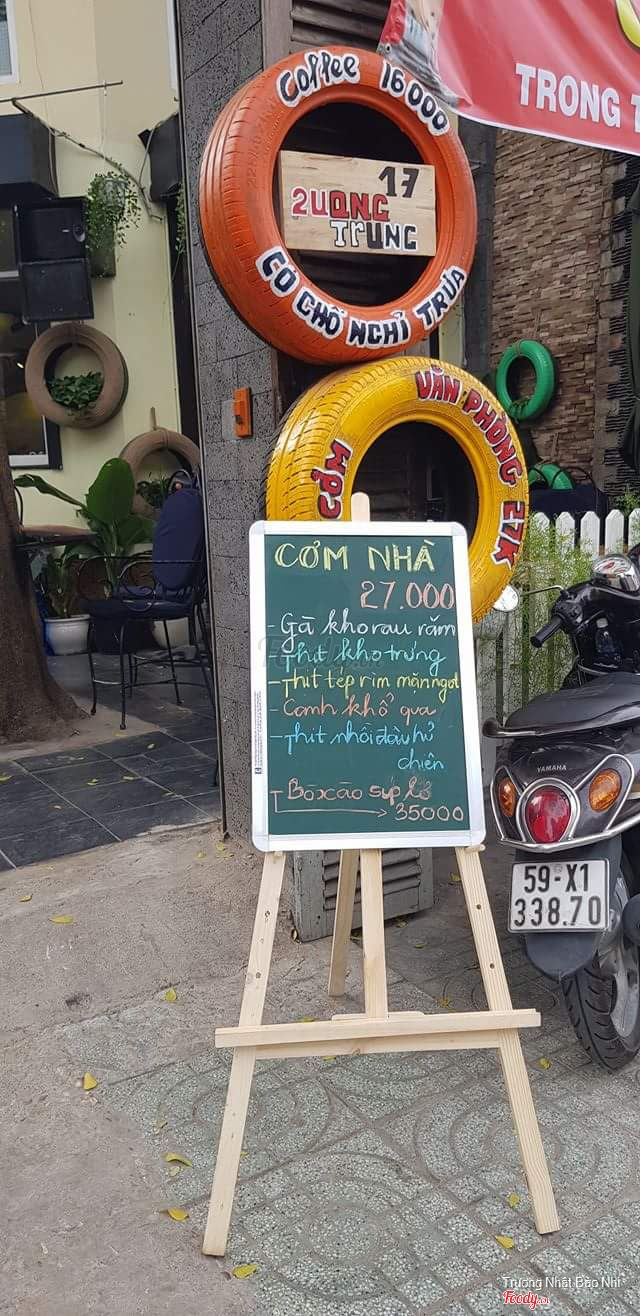 TRONG T
Coffee 16000
17
QUANG
TRUNG
CÓ CHỖ NGHỈ TRƯA
CƠM VĂN PHÒNG 27K
CƠM NHÀ
27.000
- Gà kho rau răm
- Thịt kho trứng
- Thịt tép rim mặn ngọt
- Canh khổ qua
- Thịt nhồi đậu hủ
chiên
Bò xào súp lơ
35000
YAMAHA
59-X1
338.70
Trương Nhật Bảo Nhi
Foody.vn